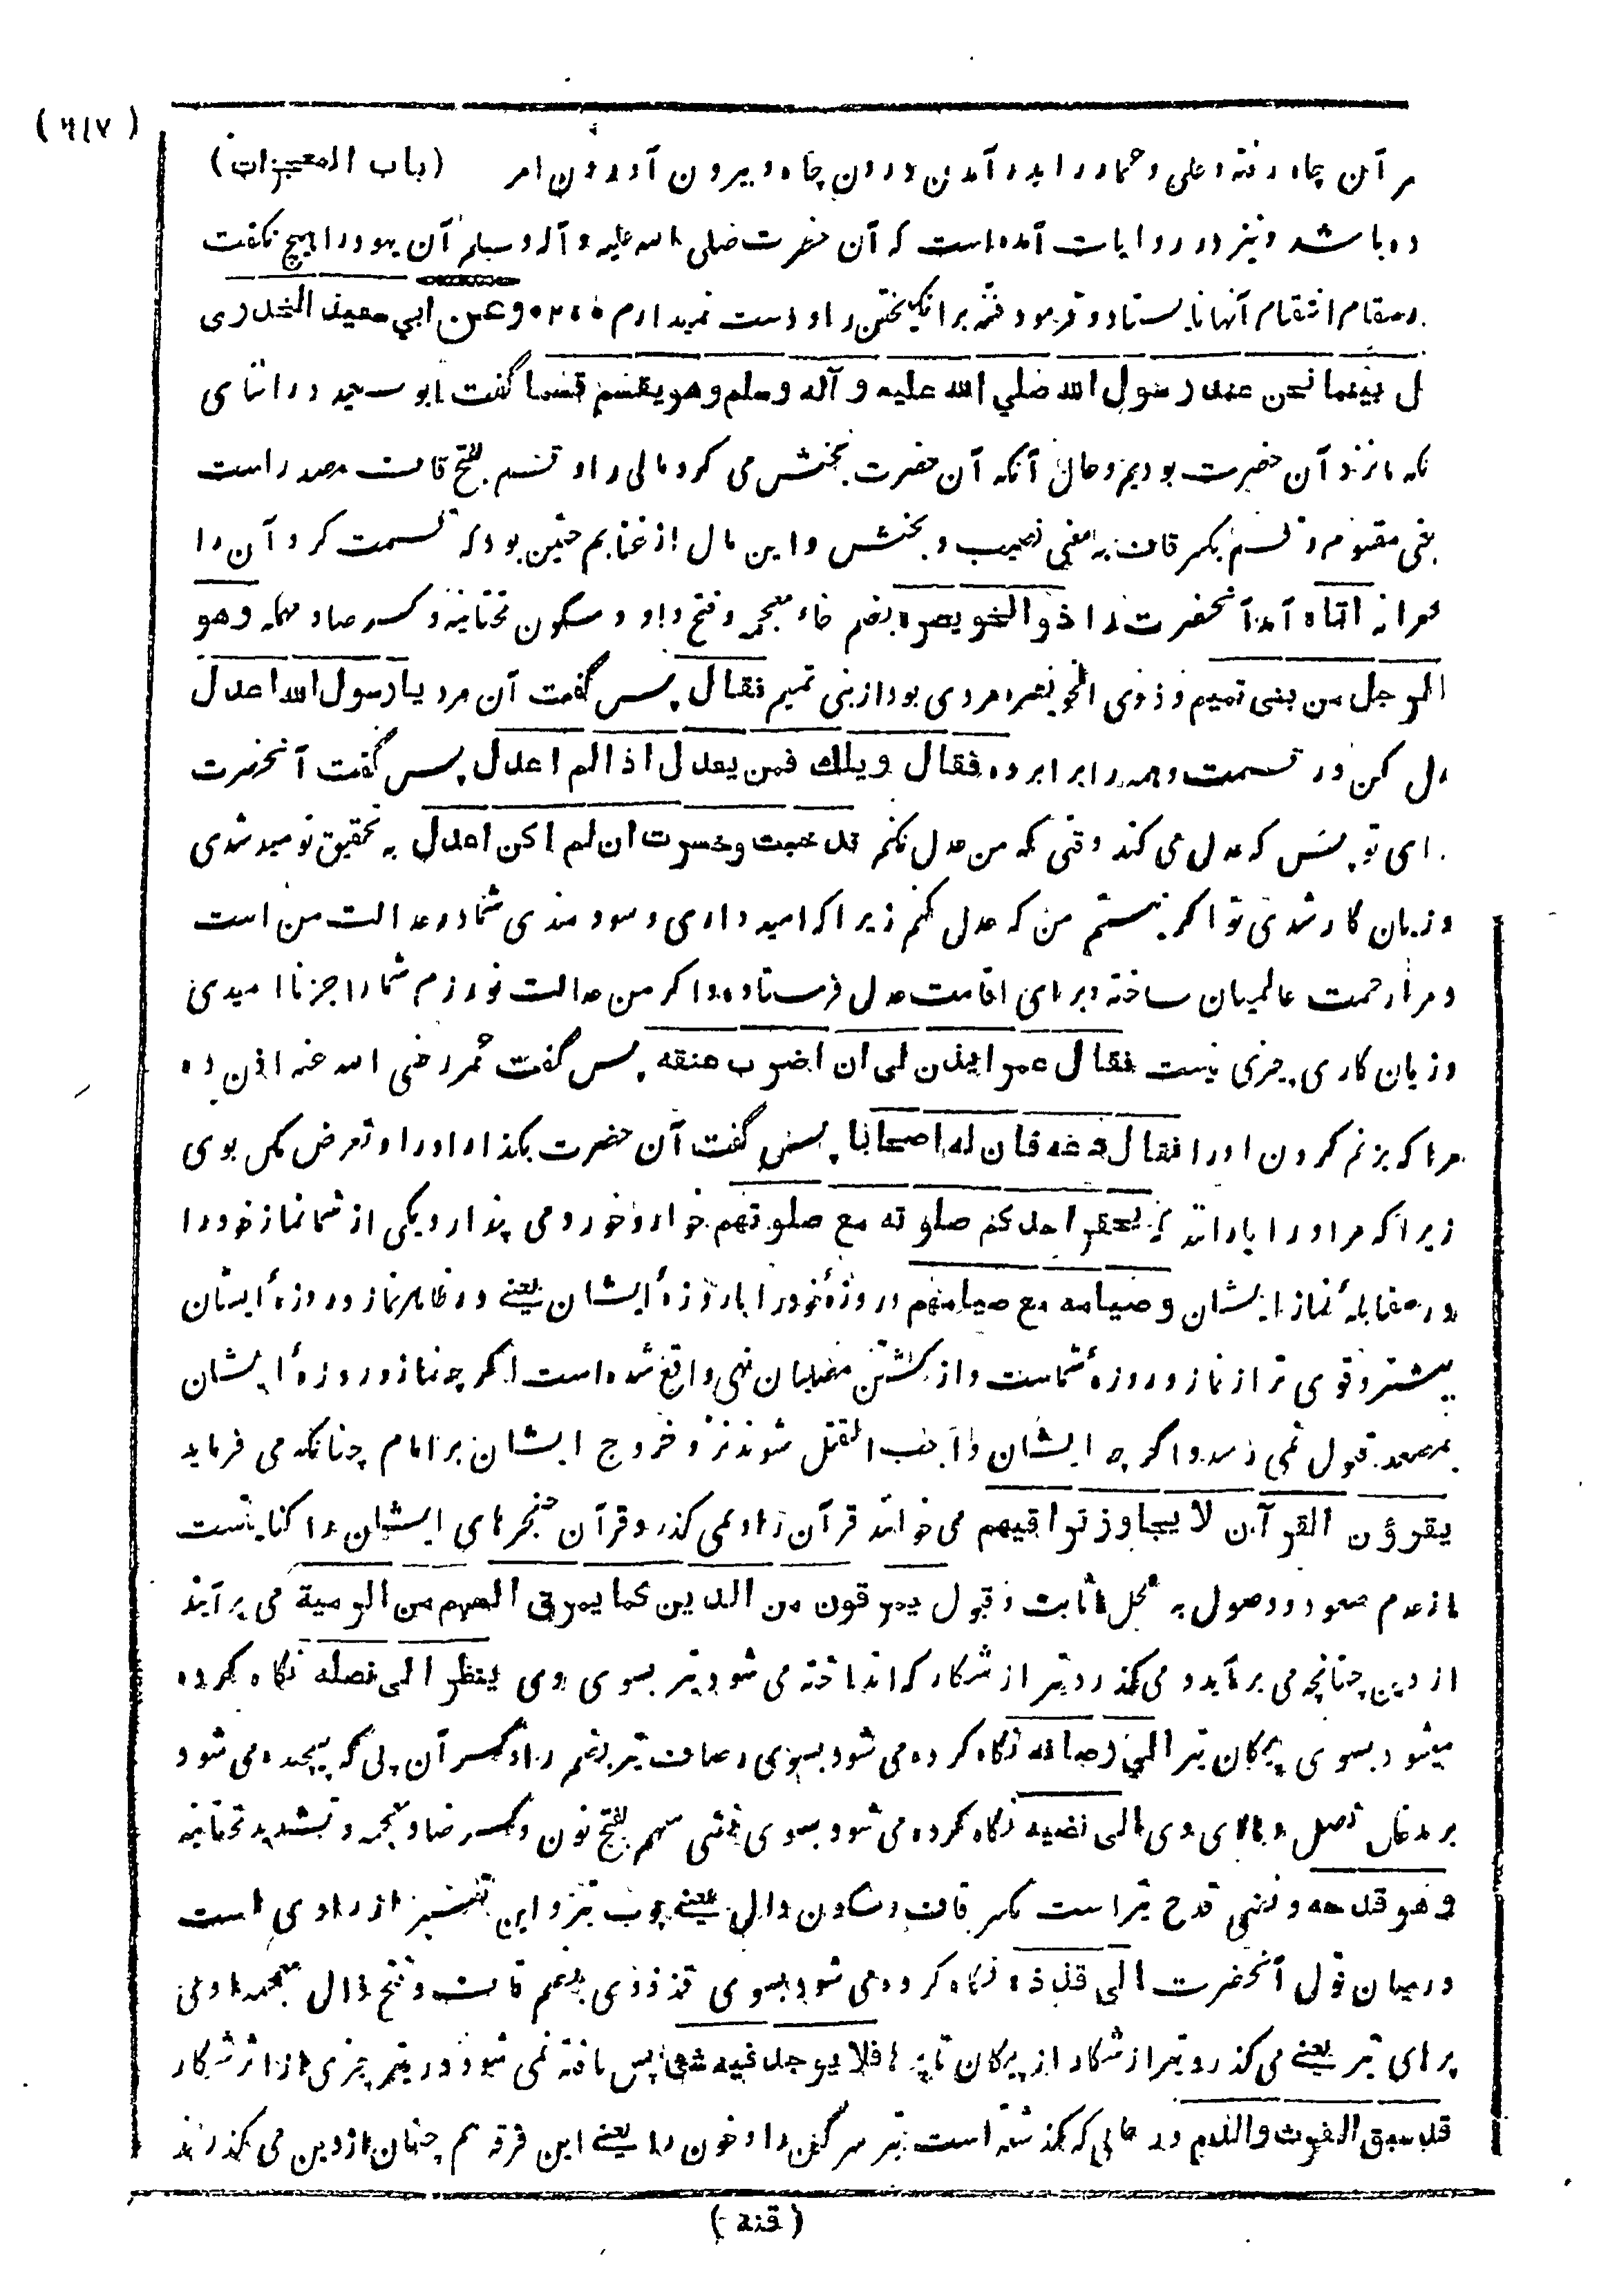 (٦١٧)
(باب المعجزات) ر آن چاه رفته و علی و عمار را بدر آمدن درون چاه و بیرون آوردن امر
ده باشد و نیز در روایات آمده است که آن حضرت صلی الله علیه و آله وسلم آن یهود را هیچ نگفت
در مقام انتقام آنها نایستاد و فرمود فتنه برانگیختن را دوست نمیدارم وعن ابي سعيد الخدري
ل بينما نحن عند رسول الله صلي الله عليه و آله وسلم وهو يقسم قسما گفت ابو سعید در اثنای
نکه ما نزد آن حضرت بودیم و حال آنکه آن حضرت بخشش می کرد مالی را و قسم بفتح قاف مصدر است
بمعنی مقسوم و قسم بکسر قاف به معنی نصیب و بخشش و این مال از غنایم حنین بود که قسمت کرد آن را
جعرانه اتاه آمد آنحضرت را ذو الخويصرة بضم خاء معجمه و فتح واو و سکون تحتانیه و کسر صاد مهمله وهو
الرجل من بني تميم و ذوی الخویصره مردی بود از بنی تمیم فقال پس گفت آن مرد يا رسول الله اعدل
دل کن در قسمت و همه را برابر ده فقال ويلك فمن يعدل اذا لم اعدل پس گفت آنحضرت
ای تو پس که عدل می کند وقتی که من عدل نکنم قد خبت وخسرت ان لم اكن اعدل به تحقیق نومید شدی
و زیان کار شدی تو اگر نیستم من که عدل کنم زیرا که امیدواری و سودمندی شما در عدالت من است
و مرا رحمت عالمیان ساخته و برای اقامت عدل فرستاده و اگر من عدالت نورزم شما را جز نا امیدی
و زیان کاری چیزی نیست فقال عمر ايذن لي ان اضرب عنقه پس گفت عمر رضی الله عنه اذن ده
مرا که بزنم گردن او را فقال دعه فان له اصحابا پس گفت آن حضرت بگذار او را و تعرض مکن بوی
زیرا که مر او را یارانند که يحقر احدكم صلوته مع صلوتهم خوار و خورد می پندارد یکی از شما نماز خود را
در مقابله نماز ایشان وصيامه مع صيامهم و روزۀ خود را با روزۀ ایشان یعنے در ظاهر نماز و روزۀ ایشان
بیشتر و قوی تر از نماز و روزه شماست و از کشتن مصلیان نهی واقع شده است اگر چه نماز و روزۀ ایشان
بمصعد قبول نمی رسد و اگر چه ایشان واجب القتل شوند نزد خروج ایشان بر امام چنانکه می فرماید
يقرؤن القرآن لا يجاوز تراقيهم می خوانند قرآن را و نمی گذرد قرآن حنجرهای ایشان را کنایتست
از عدم صعود و وصول به محل اثابت و قبول يمرقون من الدين كما يمرق السهم من الرمية می برآیند
از دین چنانچه می برآید و می گذرد تیر از شکار که انداخته می شود تیر بسوی وی ينظر الى نصله نگاه کرده
میشود بسوی پیکان تیر الى رصافه نگاه کرده می شود بسوی رصاف تیر بضم را و کسر آن پی که پیچیده می شود
بر مدخل نصل و بالای وی الى نضيه نگاه کرده می شود بسوی نضی سهم بفتح نون و کسر ضاد معجمه و تشدید تحتانیه
وهو قدحه و نضی قدح تیر است بکسر قاف و سکون دال یعنے چوب تیر و این تفسیر از راوی است
درمیان قول آنحضرت الى قذذه نگاه کرده می شود بسوی قذذ وی بضم قاف و فتح ذال معجمه اولی
پرهای تیر یعنے می گذرد تیر از شکار از پیکان تا پرها فلا يوجد فيه شئ پس یافته نمی شود در تیر چیزی از اثر شکار
قد سبق الفرث والدم در حالی که گذشته است تیر سرگین را و خون را یعنے این فرقه هم چنان از دین می گذرند
(قنة)